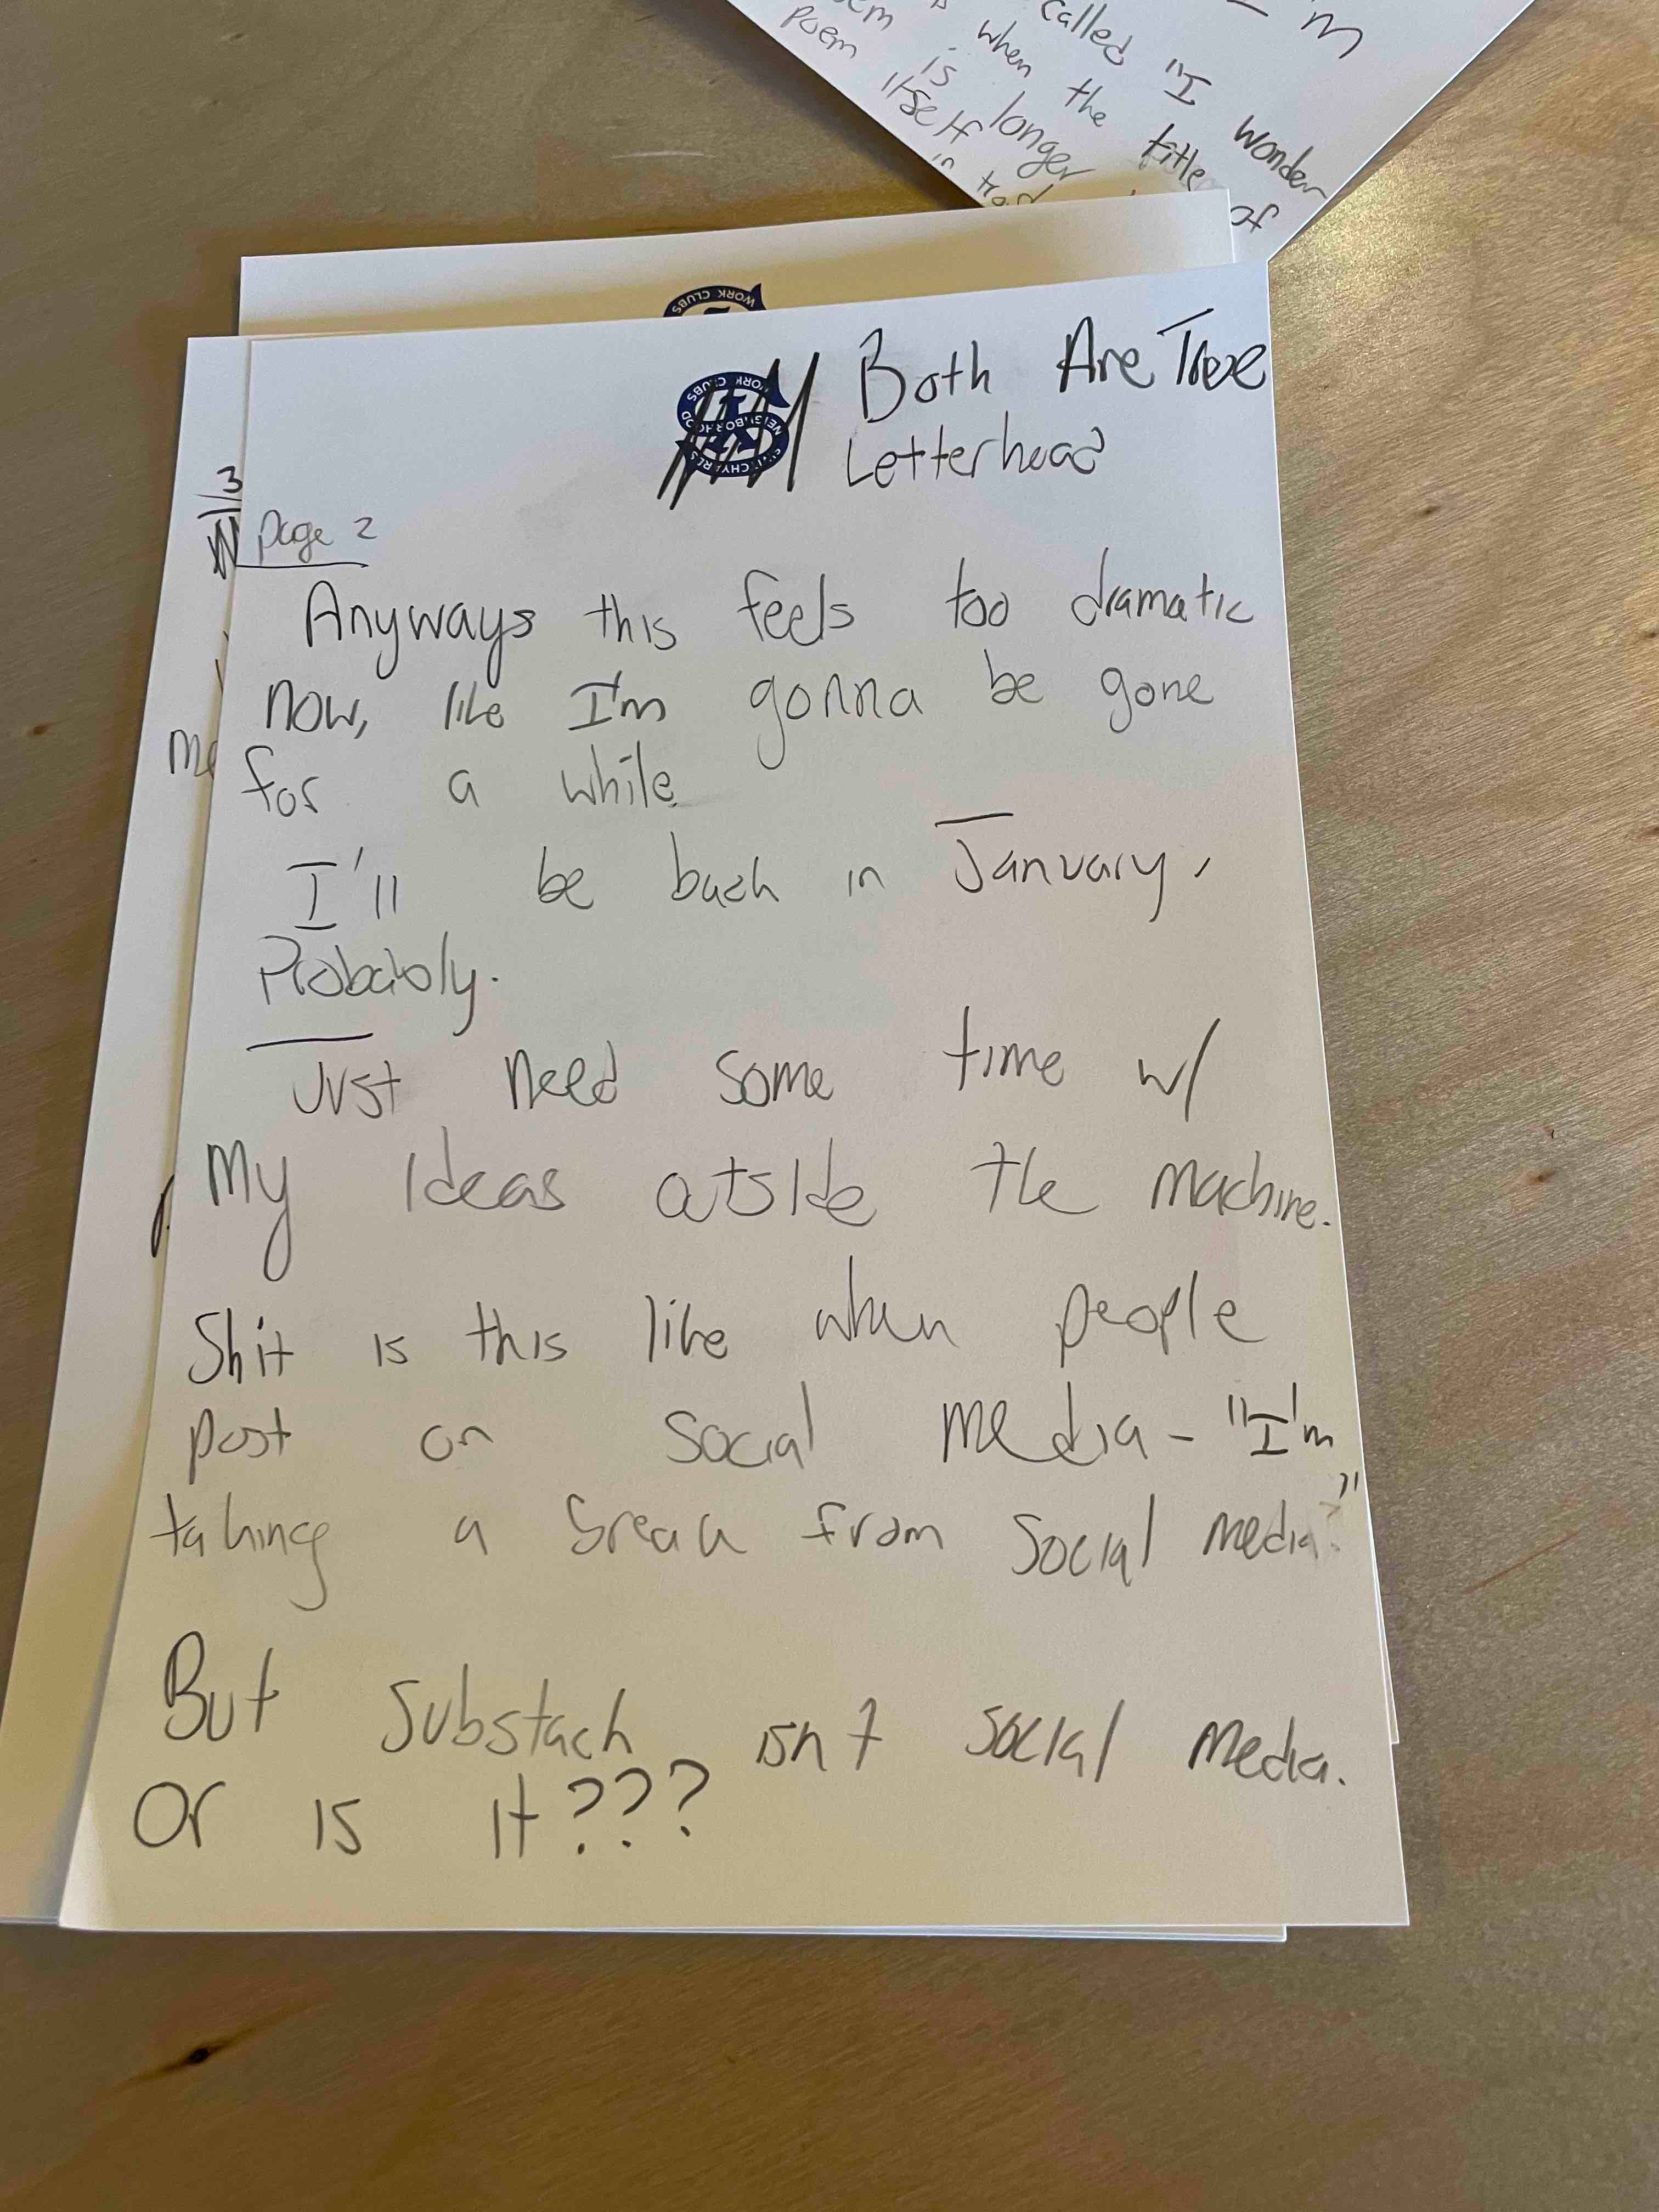 called "I wonder
when the title of
poem is longer
poem itself
in
WORK CLUBS
SWITCHYARDS
NEIGHBORHOOD
WORK CLUBS
Both Are True
Letterhead
3
page 2
Anyways this feels too dramatic
now, like I'm gonna be gone
for a while.
I'll be back in January.
Probably.
Just need some time w/
my ideas outside the machine.
Shit is this like when people
post on social media - "I'm
taking a break from social media?"
But Substack isn't social media.
Or is it???